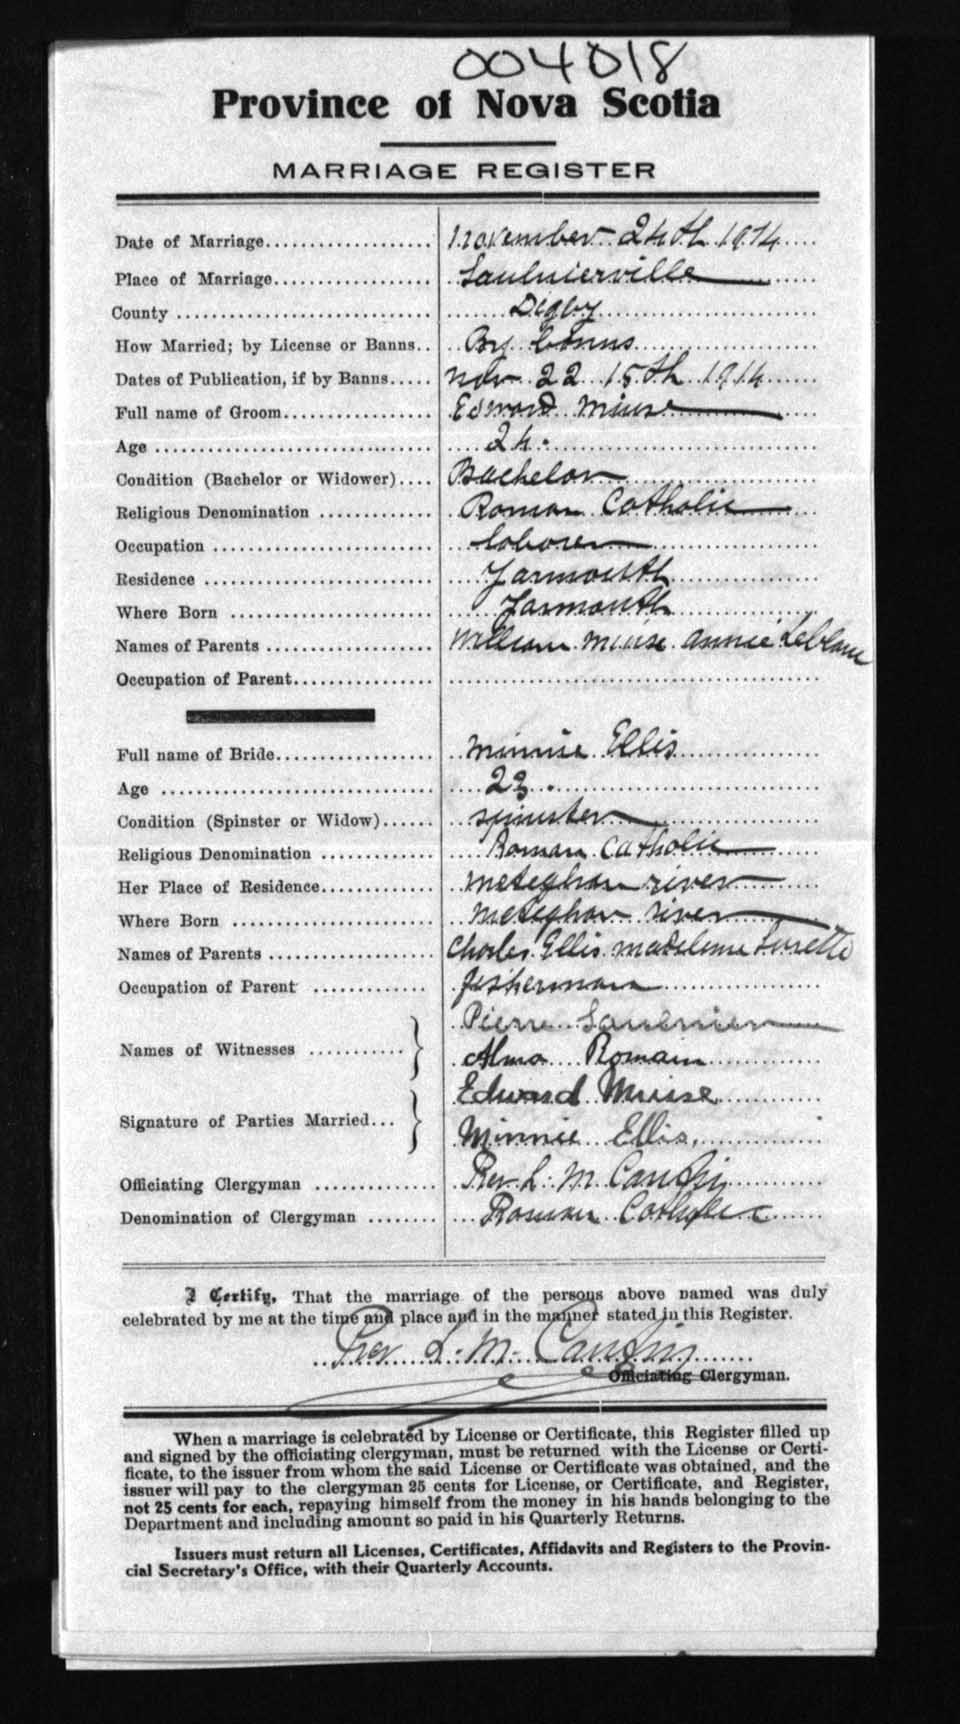 004018
Province of Nova Scotia
MARRIAGE REGISTER
Date of Marriage................... November 24th 1914
Place of Marriage.................. Saulnierville
County .............................. Digby
How Married; by License or Banns.. By banns
Dates of Publication, if by Banns..... Nov 22 15th 1914
Full name of Groom................. Edward Muise
Age ................................. 24.
Condition (Bachelor or Widower).... Bachelor
Religious Denomination ............. Roman Catholic
Occupation .......................... laborer
Residence ........................... Yarmouth
Where Born ........................ Yarmouth
Names of Parents ................... William Muise Annie Leblanc
Occupation of Parent................
Full name of Bride.................. Minnie Ellis
Age ................................. 23.
Condition (Spinster or Widow)...... spinster
Religious Denomination ............. Roman Catholic
Her Place of Residence.............. Meteghan river
Where Born ......................... Meteghan river
Names of Parents ................... Charles Ellis Madeleine Surette
Occupation of Parent ............. fisherman
Pierre Saulnier
Names of Witnesses ...........
Alma Romain
Edward Muise
Signature of Parties Married...
Minnie Ellis.
Officiating Clergyman .............. Rev L. M.
Denomination of Clergyman ........ Roman Catholic
I Certify, That the marriage of the persons above named was duly
celebrated by me at the time and place and in the manner stated in this Register.
Rev L. M.
Officiating Clergyman.
When a marriage is celebrated by License or Certificate, this Register filled up
and signed by the officiating clergyman, must be returned with the License or Certi-
ficate, to the issuer from whom the said License or Certificate was obtained, and the
issuer will pay to the clergyman 25 cents for License, or Certificate, and Register,
not 25 cents for each, repaying himself from the money in his hands belonging to the
Department and including amount so paid in his Quarterly Returns.
Issuers must return all Licenses, Certificates, Affidavits and Registers to the Provin-
cial Secretary's Office, with their Quarterly Accounts.